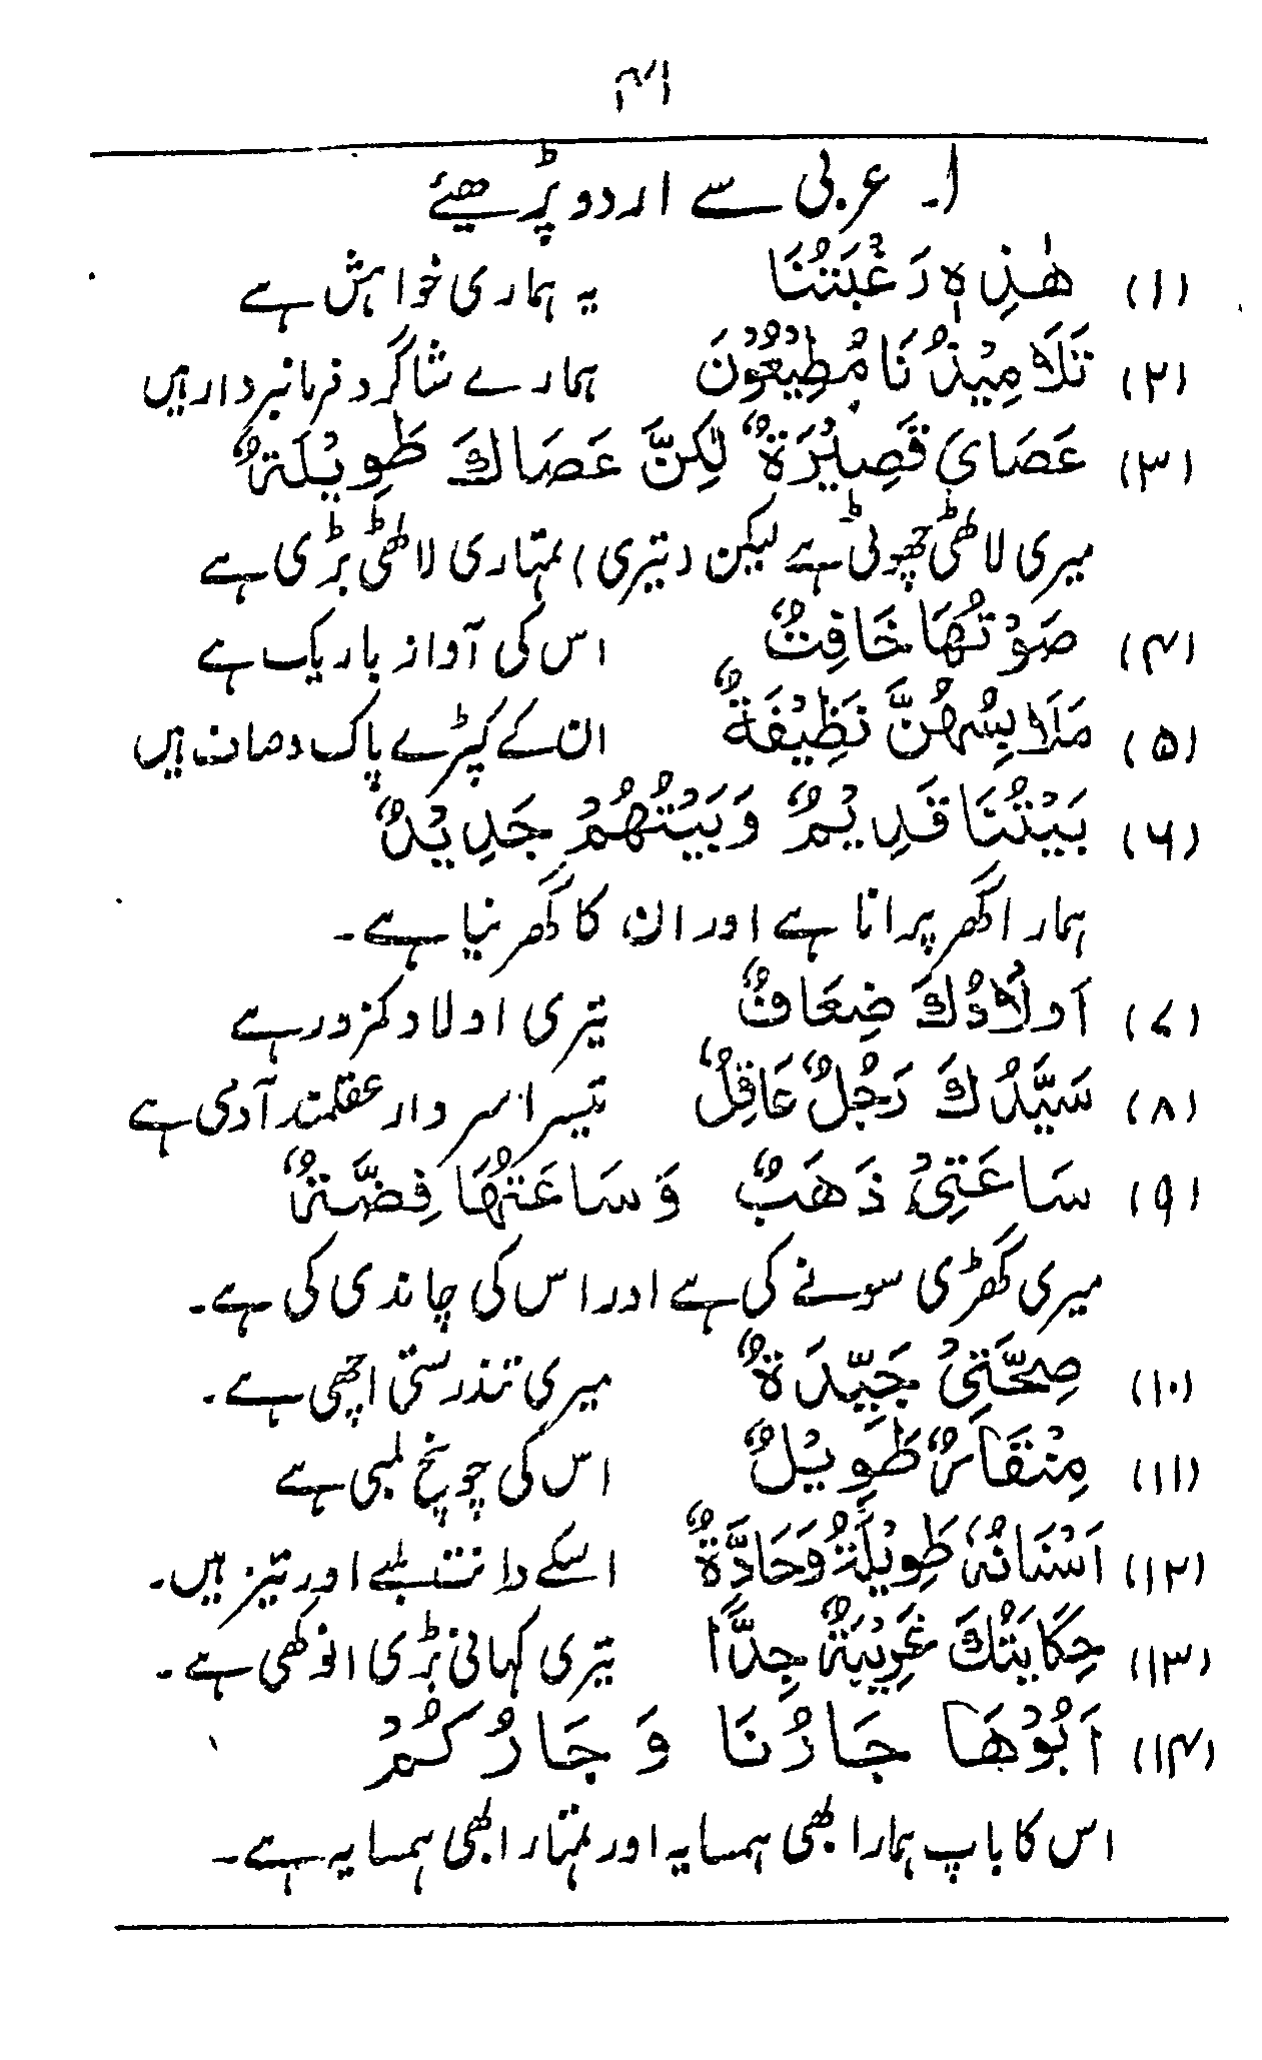 ۴۱
۱۔ عربی سے اردو پڑھیئے
(۱) هٰذِهٖ رَغْبَتُنَا یہ ہماری خواہش ہے
(۲) تَلَامِيْذُنَا مُطِيْعُوْنَ ہمارے شاگرد فرمانبردار ہیں
(۳) عَصَایَ قَصِيْرَةٌ لٰكِنَّ عَصَاكَ طَوِيْلَةٌ
میری لاٹھی چھوٹی ہے لیکن (تیری) تمہاری لاٹھی بڑی ہے
(۴) صَوْتُهَا خَافِتٌ اس کی آواز باریک ہے
(۵) مَلَابِسُهُنَّ نَظِيْفَةٌ ان کے کپڑے پاک و صاف ہیں
(۶) بَيْتُنَا قَدِيْمٌ وَبَيْتُهُمْ جَدِيْدٌ
ہمارا گھر پرانا ہے اور ان کا گھر نیا ہے۔
(۷) اَولَادُكَ ضِعَافٌ تیری اولاد کمزور ہے
(۸) سَيَّدُكَ رَجُلٌ عَاقِلٌ تیسرا سردار عقلمند آدمی ہے
(۹) سَاعَتِیْ ذَهَبٌ وَسَاعَتُهَا فِضَّةٌ
میری گھڑی سونے کی ہے اور اس کی چاندی کی ہے۔
(۱۰) صِحَّتِیْ جَيِّدَةٌ میری تندرستی اچھی ہے۔
(۱۱) مِنْقَارٌ طَوِيْلٌ اس کی چونچ لمبی ہے
(۱۲) اَسْنَانُهٗ طَوِيْلَةٌ وَحَادَّةٌ اسکے دانت لمبے اور تیز ہیں۔
(۱۳) حِكَايَتُكَ غَرِيْبَةٌ جِدًّا تیری کہانی بڑی انوکھی ہے۔
(۱۴) اَبُوْهَا جَارُنَا وَجَارُكُمْ
اس کا باپ ہمارا بھی ہمسایہ اور تمہارا بھی ہمسایہ ہے۔